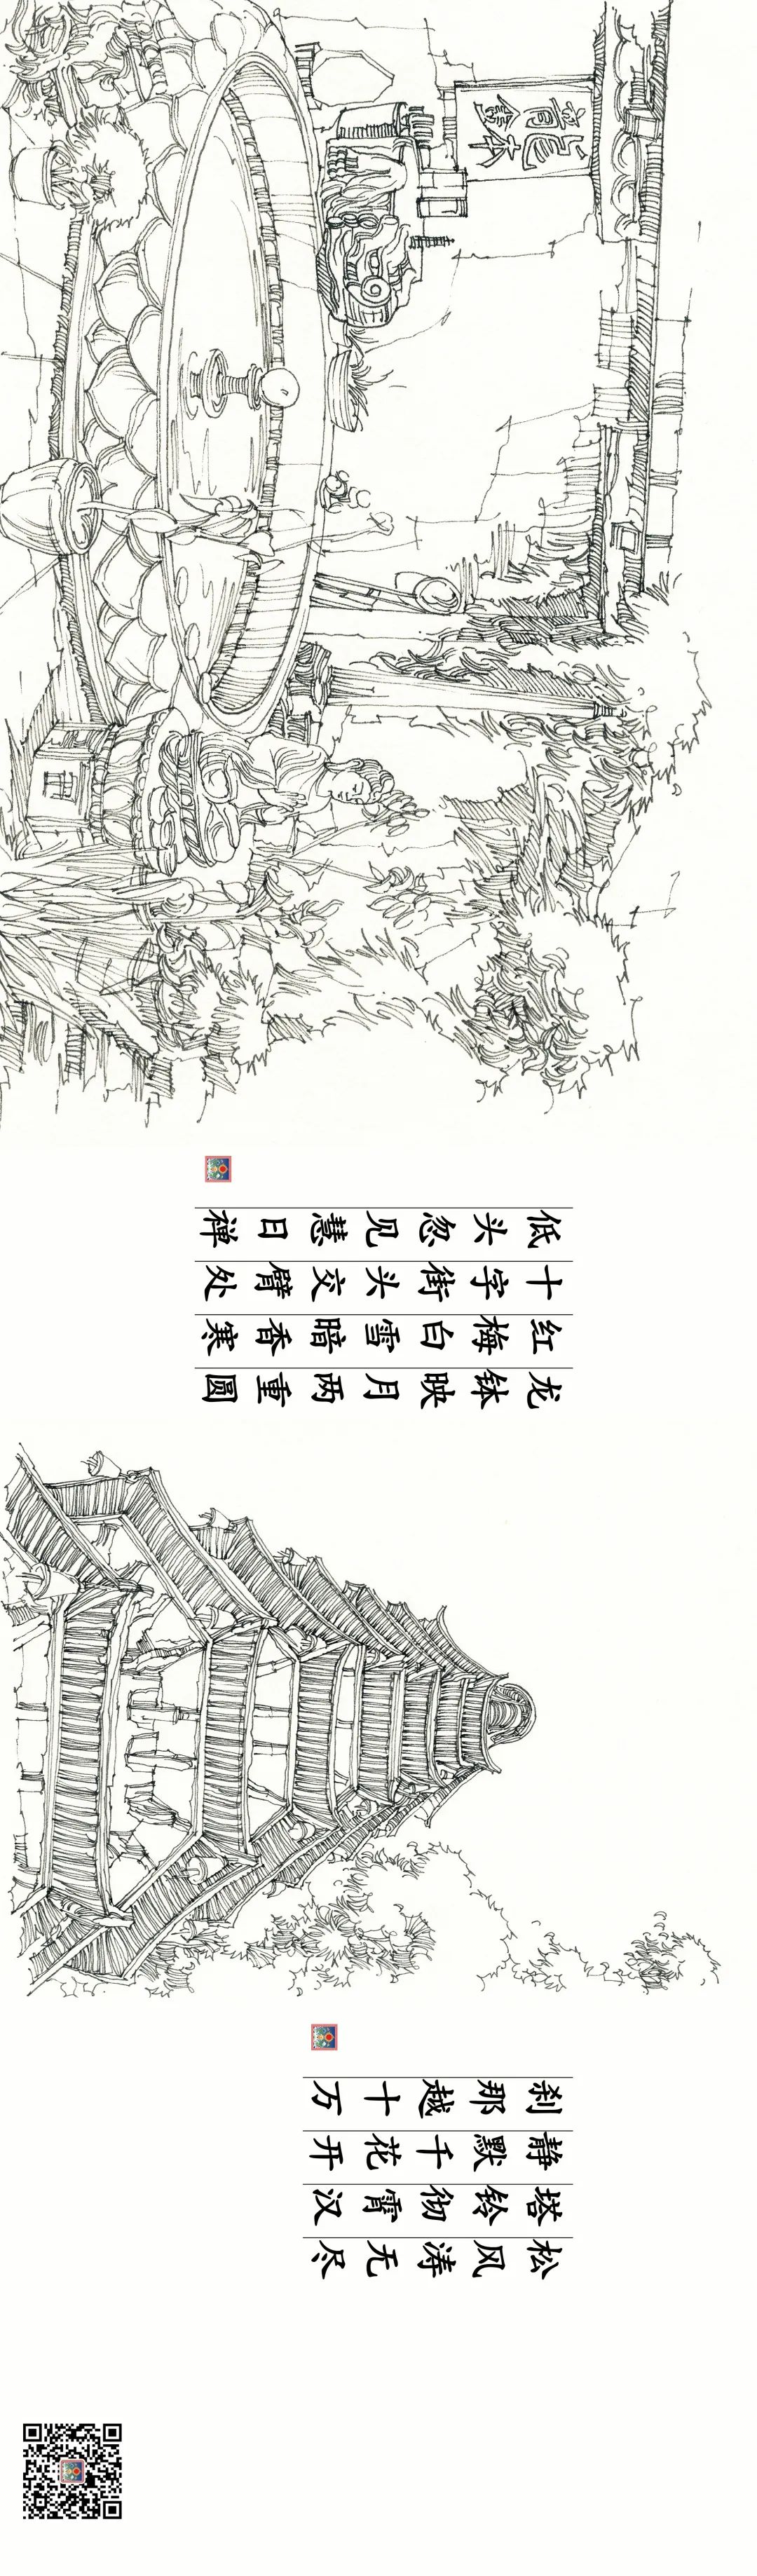 松风涛无尽
塔铃彻霄汉
静默千花开
刹那越十万
龙钵映月两重圆
红梅白雪暗香寒
十字街头交臂处
低头忽见慧日禅
龍鉢